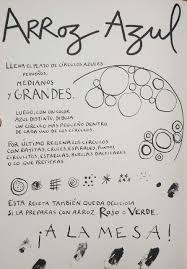 ARROZ AZUL
LLENA EL PLATO DE CÍRCULOS AZULES
PEQUEÑOS,
MEDIANOS
Y GRANDES.
LUEGO, CON UN COLOR
AZUL DISTINTO, DIBUJA
UN CÍRCULO MÁS PEQUEÑO DENTRO
DE CADA UNO DE LOS CÍRCULOS.
POR ÚLTIMO RELLENA LOS CÍRCULOS
CON RAYITAS, CRUCES, ESPIRALES, PUNTOS,
CIRCULITOS, ESTRELLAS, HUELLAS DACTILARES
O LO QUE PREFIERAS
ESTA RECETA TAMBIÉN QUEDA DELICIOSA
SI LA PREPARAS CON ARROZ ROJO O VERDE.
¡A LA MESA!